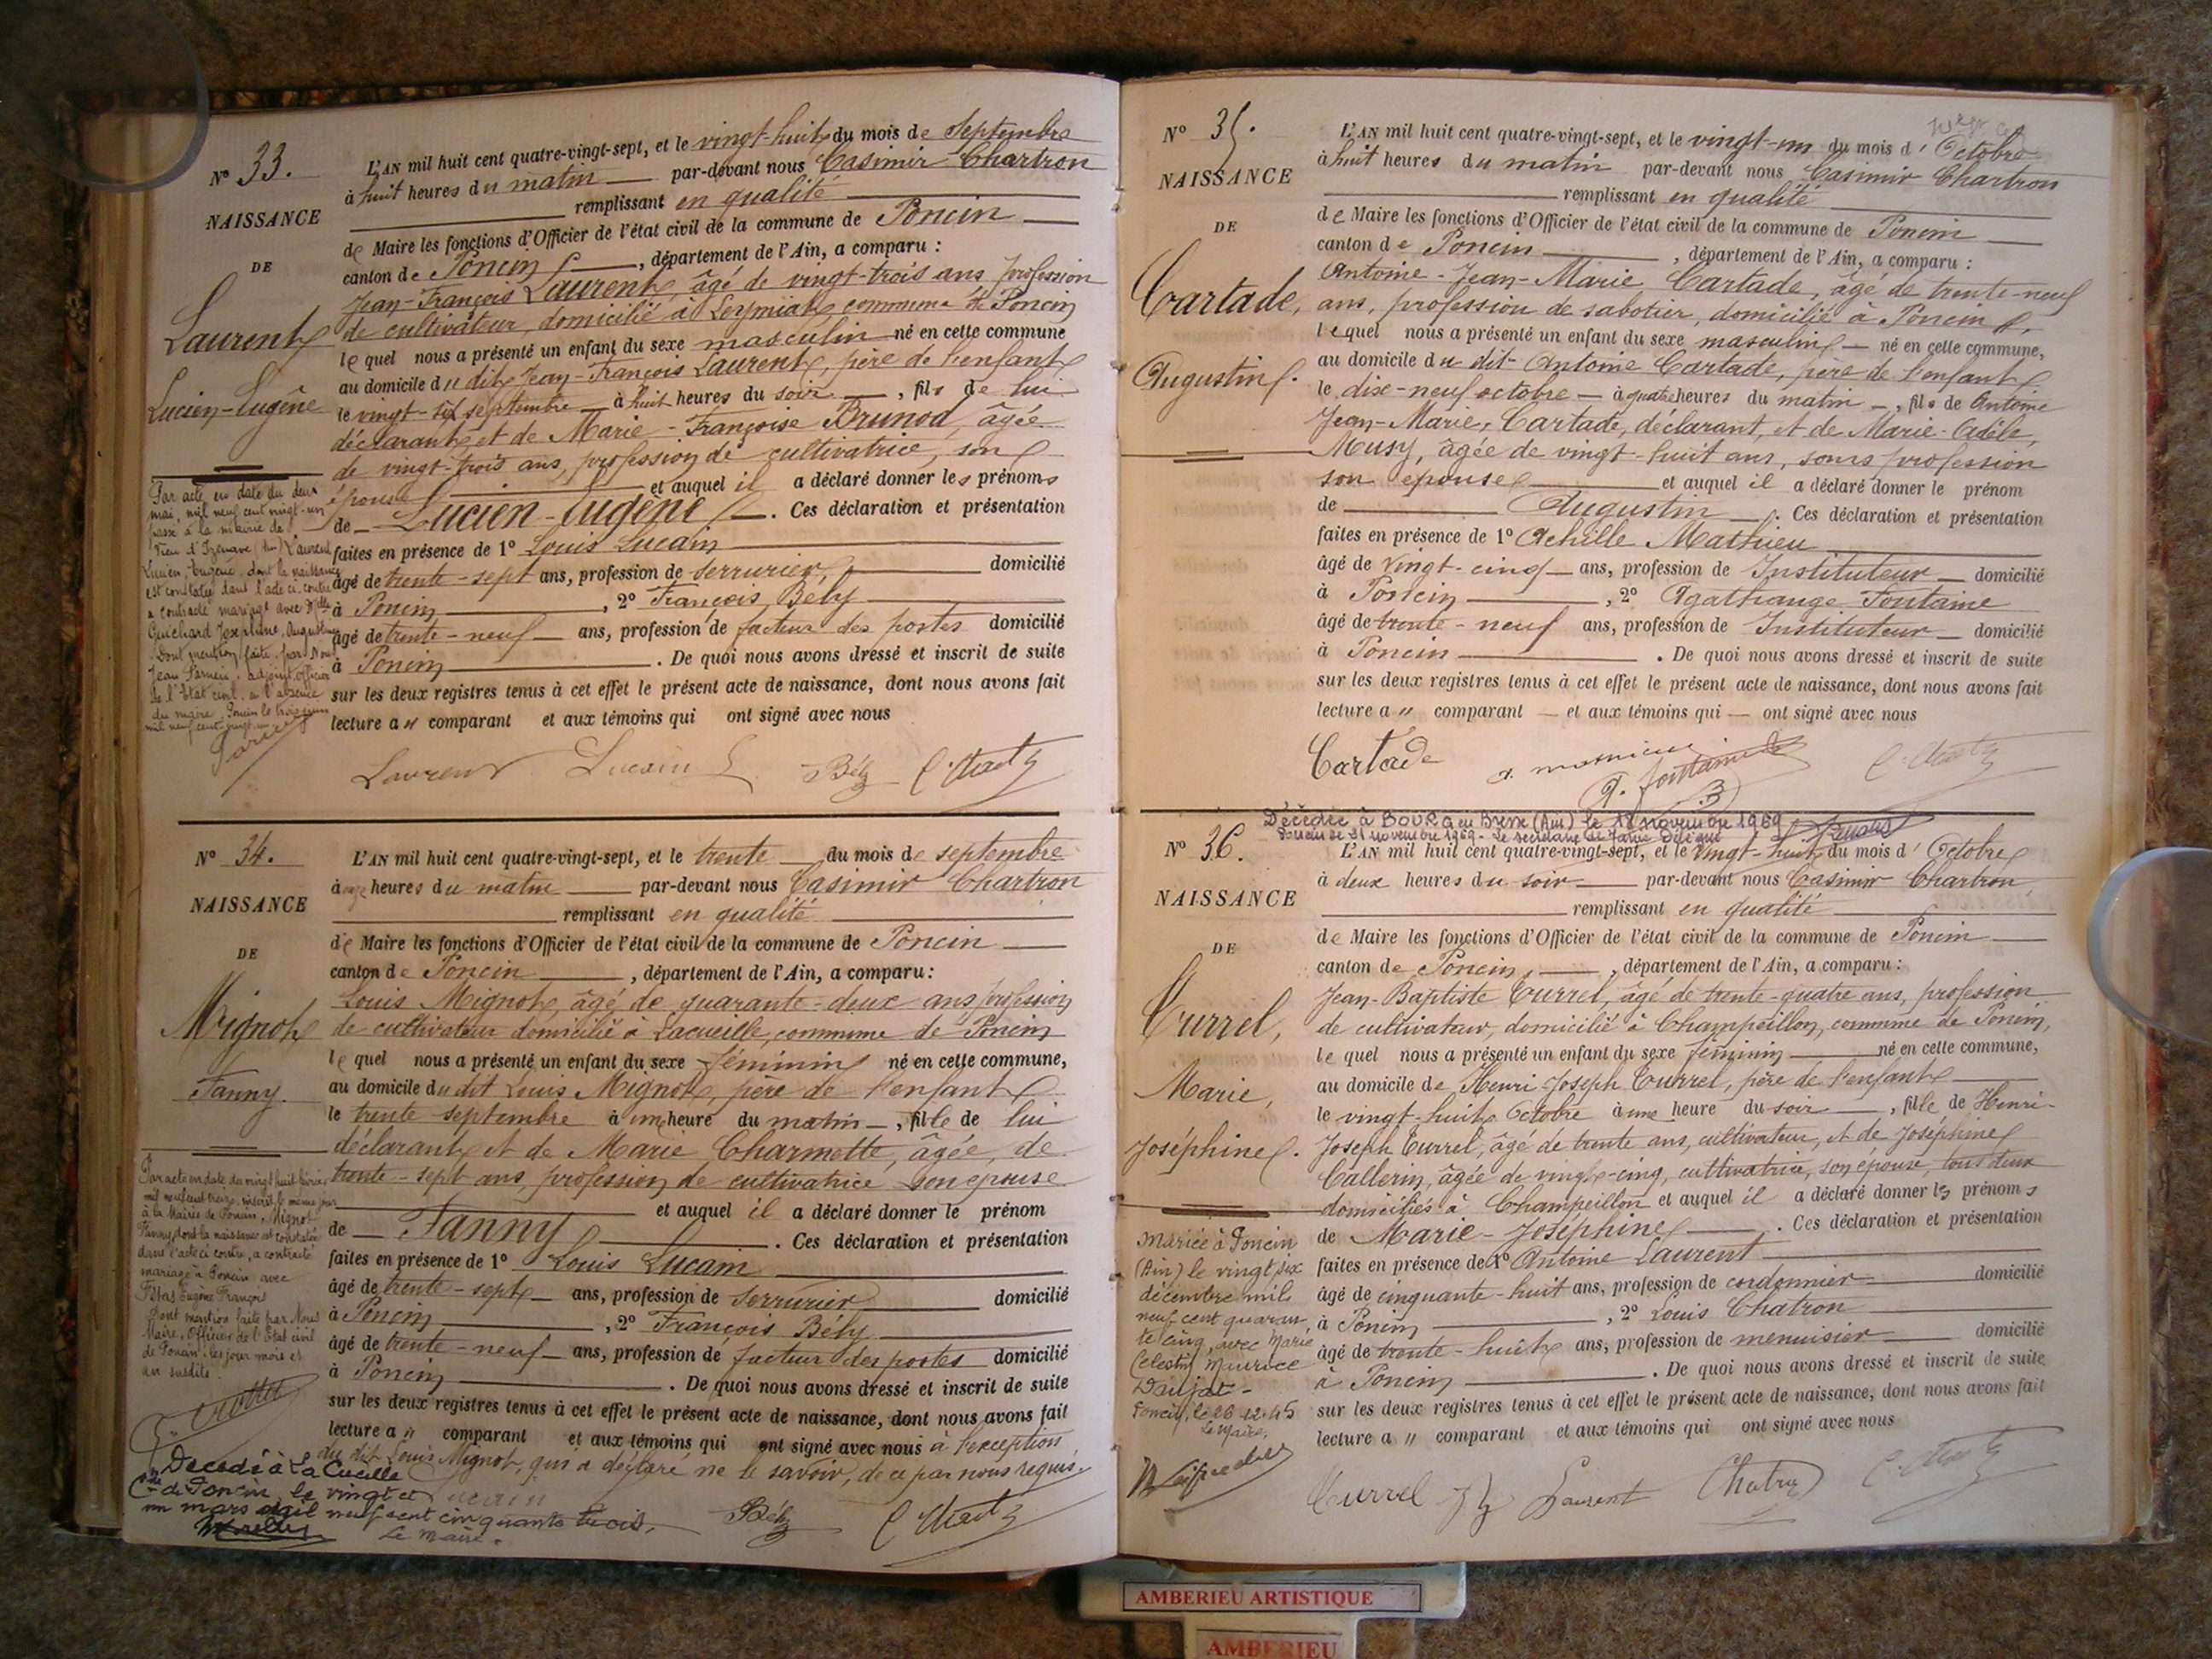 N° 33.
NAISSANCE
DE
Laurent
Lucien-Eugène
L'AN mil huit cent quatre-vingt-sept, et le vingt-huit du mois de Septembre
à huit heures du matin par-devant nous Casimir Chartron
remplissant en qualité
de Maire les fonctions d'Officier de l'état civil de la commune de Poncin
canton de Poncin, département de l'Ain, a comparu :
Jean-François Laurent, âgé de vingt-trois ans, profession
de cultivateur, domicilié à Leymiat, commune de Poncin
lequel nous a présenté un enfant du sexe masculin né en cette commune
au domicile du dit Jean-François Laurent, père de l'enfant
le vingt-six septembre à huit heures du soir, fils de lui
déclarant et de Marie-Françoise Brunod, âgée
de vingt-trois ans, profession de cultivatrice, son
épouse et auquel il a déclaré donner les prénoms
de Lucien-Eugène. Ces déclaration et présentation
faites en présence de 1° Louis Lucain
âgé de trente-sept ans, profession de serrurier, domicilié
à Poncin, 2° François Bély
âgé de trente-neuf ans, profession de facteur des postes domicilié
à Poncin. De quoi nous avons dressé et inscrit de suite
sur les deux registres tenus à cet effet le présent acte de naissance, dont nous avons fait
lecture a " comparant et aux témoins qui ont signé avec nous
Par acte en date du deux
mai, mil neuf cent vingt-un
passé à la mairie de
Vieu d'Izenave (Ain) Laurent
Lucien, Eugène, dont la naissance
est constatée dans l'acte ci-contre
a contracté mariage avec Mlle
Guichard Joséphine, Augustine
Dont mention faite par Nous
Jean adjoint, officier
de l'Etat civil, en l'absence
du maire. Poncin le trois
mil neuf cent vingt-un
Laurent Lucain Bély C. Chartron
N° 34.
NAISSANCE
DE
Mignot
Fanny.
L'AN mil huit cent quatre-vingt-sept, et le trente du mois de septembre
à onze heures du matin par-devant nous Casimir Chartron
remplissant en qualité
de Maire les fonctions d'Officier de l'état civil de la commune de Poncin
canton de Poncin, département de l'Ain, a comparu :
Louis Mignot, âgé de quarante-deux ans, profession
de cultivateur domicilié à Lacueille, commune de Poncin
lequel nous a présenté un enfant du sexe féminin né en cette commune,
au domicile du dit Louis Mignot, père de l'enfant
le trente septembre à une heure du matin, fille de lui
déclarant et de Marie Charmette, âgée, de
trente-sept ans, profession de cultivatrice son épouse
et auquel il a déclaré donner le prénom
de Fanny. Ces déclaration et présentation
faites en présence de 1° Louis Lucain
âgé de trente-sept ans, profession de serrurier domicilié
à Poncin, 2° François Bély
âgé de trente-neuf ans, profession de facteur des postes domicilié
à Poncin. De quoi nous avons dressé et inscrit de suite
sur les deux registres tenus à cet effet le présent acte de naissance, dont nous avons fait
lecture a " comparant et aux témoins qui ont signé avec nous à l'exception
du dit Louis Mignot, qui a déclaré ne le savoir, de ce par nous requis.
Par acte en date du vingt huit
mil neuf cent treize, inscrit le même jour
à la Mairie de Poncin, Mignot
Fanny dont la naissance est constatée
dans l'acte ci contre, a contracté
mariage à Poncin avec
Eugène François
Dont mention faite par Nous
Maire, Officier de l'Etat civil
de Poncin les jour mois et
an susdits.
Décédé à La Cueille
Cne de Poncin, le vingt et
un mars mil neuf cent cinquante trois.
Le maire.
Lucain Bély C. Chartron
N° 35.
NAISSANCE
DE
Cartade,
Augustin.
L'AN mil huit cent quatre-vingt-sept, et le vingt-un du mois d'Octobre
à huit heures du matin par-devant nous Casimir Chartron
remplissant en qualité
de Maire les fonctions d'Officier de l'état civil de la commune de Poncin
canton de Poncin, département de l'Ain, a comparu :
Antoine-Jean-Marie Cartade, âgé de trente-neuf
ans, profession de sabotier, domicilié à Poncin,
lequel nous a présenté un enfant du sexe masculin né en cette commune,
au domicile du dit Antoine Cartade, père de l'enfant
le dix-neuf octobre à quatre heures du matin, fils de Antoine
Jean-Marie, Cartade, déclarant, et de Marie-Adèle,
Musy, âgée de vingt-huit ans, sans profession
son épouse et auquel il a déclaré donner le prénom
de Augustin. Ces déclaration et présentation
faites en présence de 1° Achille Mathieu
âgé de vingt-cinq ans, profession de Instituteur domicilié
à Poncin, 2° Agathange Fontaine
âgé de trente-neuf ans, profession de Instituteur domicilié
à Poncin. De quoi nous avons dressé et inscrit de suite
sur les deux registres tenus à cet effet le présent acte de naissance, dont nous avons fait
lecture a " comparant et aux témoins qui ont signé avec nous
Cartade A. Mathieu A. Fontaine C. Chartron
Décédée à BOURG en Bresse (Ain) le 18 novembre 1969
Poncin le 21 novembre 1969 - Le secrétaire de Mairie Délégué
N° 36.
NAISSANCE
DE
Currel,
Marie,
Joséphine.
L'AN mil huit cent quatre-vingt-sept, et le vingt-huit du mois d'Octobre
à deux heures du soir par-devant nous Casimir Chartron
remplissant en qualité
de Maire les fonctions d'Officier de l'état civil de la commune de Poncin
canton de Poncin, département de l'Ain, a comparu :
Jean-Baptiste Currel, âgé de trente-quatre ans, profession
de cultivateur, domicilié à Champeillon, commune de Poncin,
lequel nous a présenté un enfant du sexe féminin né en cette commune,
au domicile de Henri-Joseph Currel, père de l'enfant
le vingt-huit Octobre à une heure du soir, fille de Henri-
Joseph Currel, âgé de trente ans, cultivateur, et de Joséphine
Callerin, âgée de vingt-cinq, cultivatrice, son épouse, tous deux
domiciliés à Champeillon et auquel il a déclaré donner les prénoms
de Marie-Joséphine. Ces déclaration et présentation
faites en présence de 1° Antoine Laurent
âgé de cinquante-huit ans, profession de cordonnier domicilié
à Poncin, 2° Louis Chatron
âgé de trente-huit ans, profession de menuisier domicilié
à Poncin. De quoi nous avons dressé et inscrit de suite
sur les deux registres tenus à cet effet le présent acte de naissance, dont nous avons fait
lecture a " comparant et aux témoins qui ont signé avec nous
Mariée à Poncin
(Ain) le vingt six
décembre mil
neuf cent quaran
te cinq, avec Marie
Célestin Maurice
Daujat -
Poncin, le 26-12-45
Le Maire,
Currel Laurent Chatron C. Chartron
AMBERIEU ARTISTIQUE
AMBERIEU